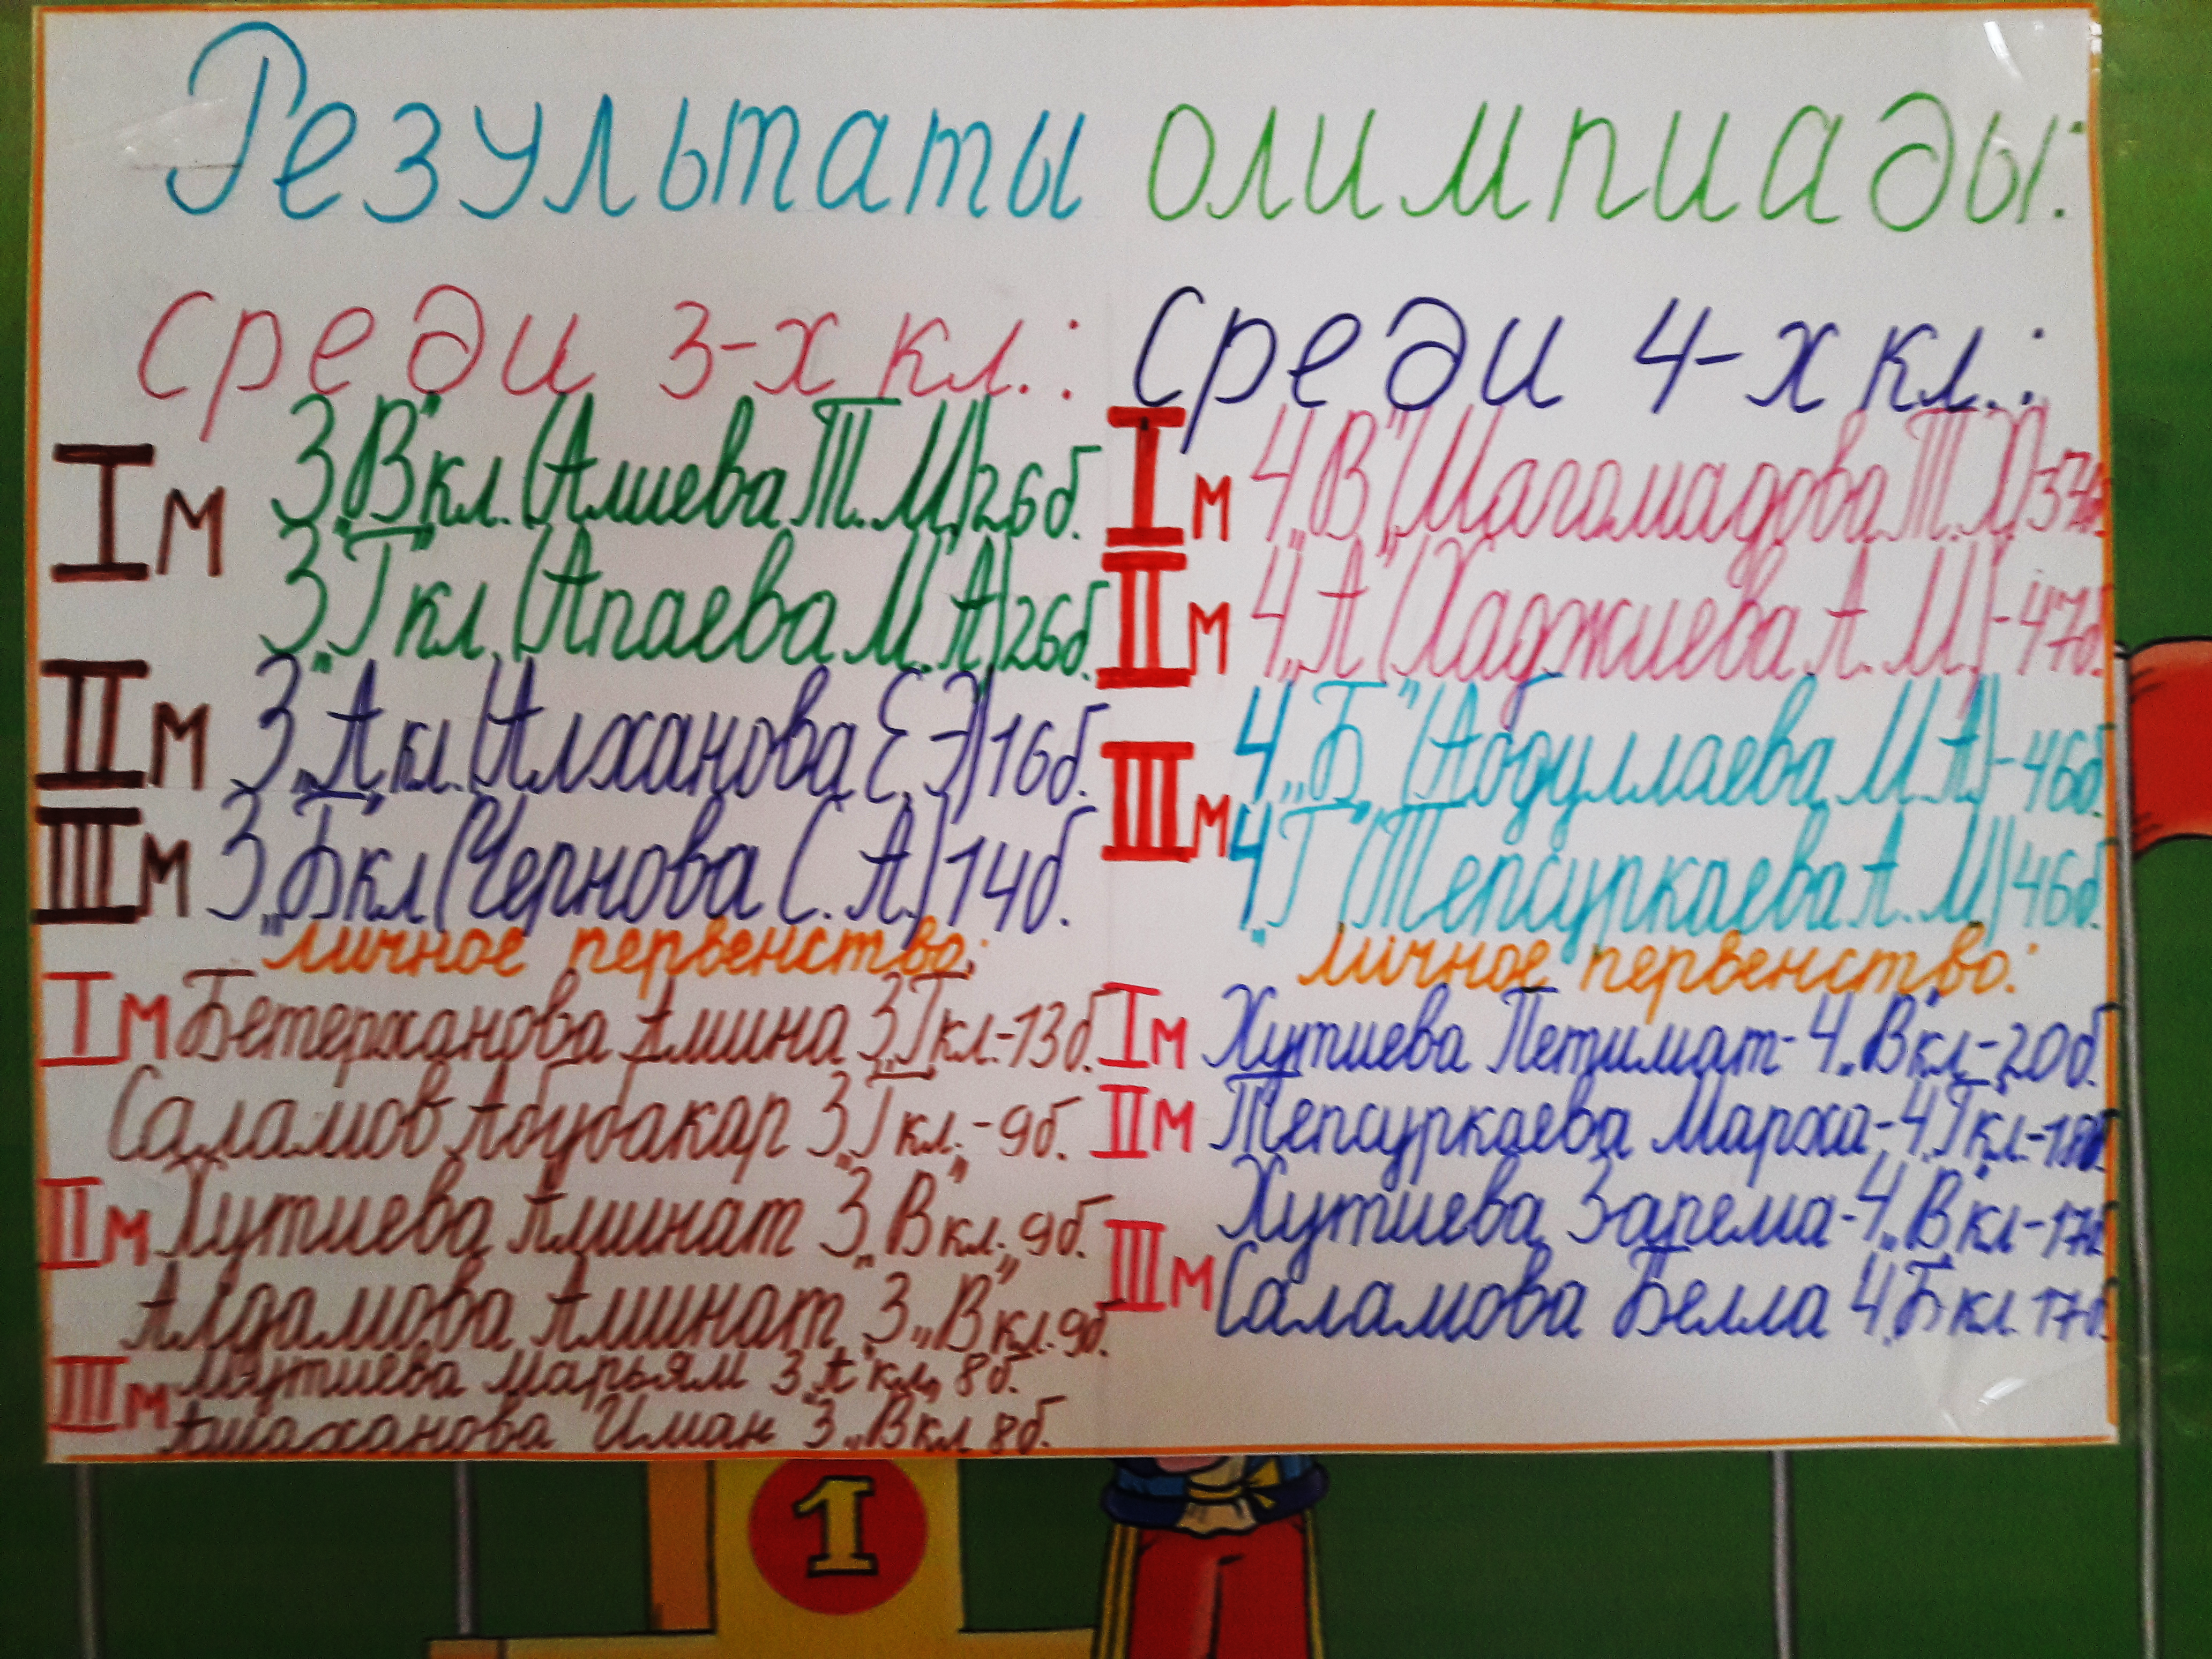 Результаты олимпиады:
Среди 3-х кл.:
I м 3 „В" кл. (Алиева Т. М.) 26б.
3 „Г" кл. (Апаева М. А) 26б.
II м 3 „А" кл. (Алханова Е. Э) 16б.
III м 3 „Б" кл (Чернова С. А.) 14б.
личное первенство:
I м Бетерханова Амина 3 „Г" кл. - 13б.
Саламов Абубакар 3 „Г" кл. - 9б.
II м Хутиева Аминат 3 „В" кл. 9б.
Алдамова Аминат 3 „В" кл. 9б.
III м Марьям 3 „А" кл. 8б.
Иман 3 „В" кл 8б.
Среди 4-х кл.:
I м 4 „В" (Магомадова Т. Х)
II м 4 „А" (Хаджиева А. М) - 47б.
III м 4 „Б" (Абдуллаева М. А) - 46б.
4 „Г" (Тепсуркаева А. М) 46б.
личное первенство:
I м Хутиева Петимат - 4 „В" кл - 20б.
II м Тепсуркаева Марха - 4 „Г" кл. -
Хутиева Зарема - 4 „В" кл - 17б
III м Саламова Белла 4 „Б" кл. 17б.
1